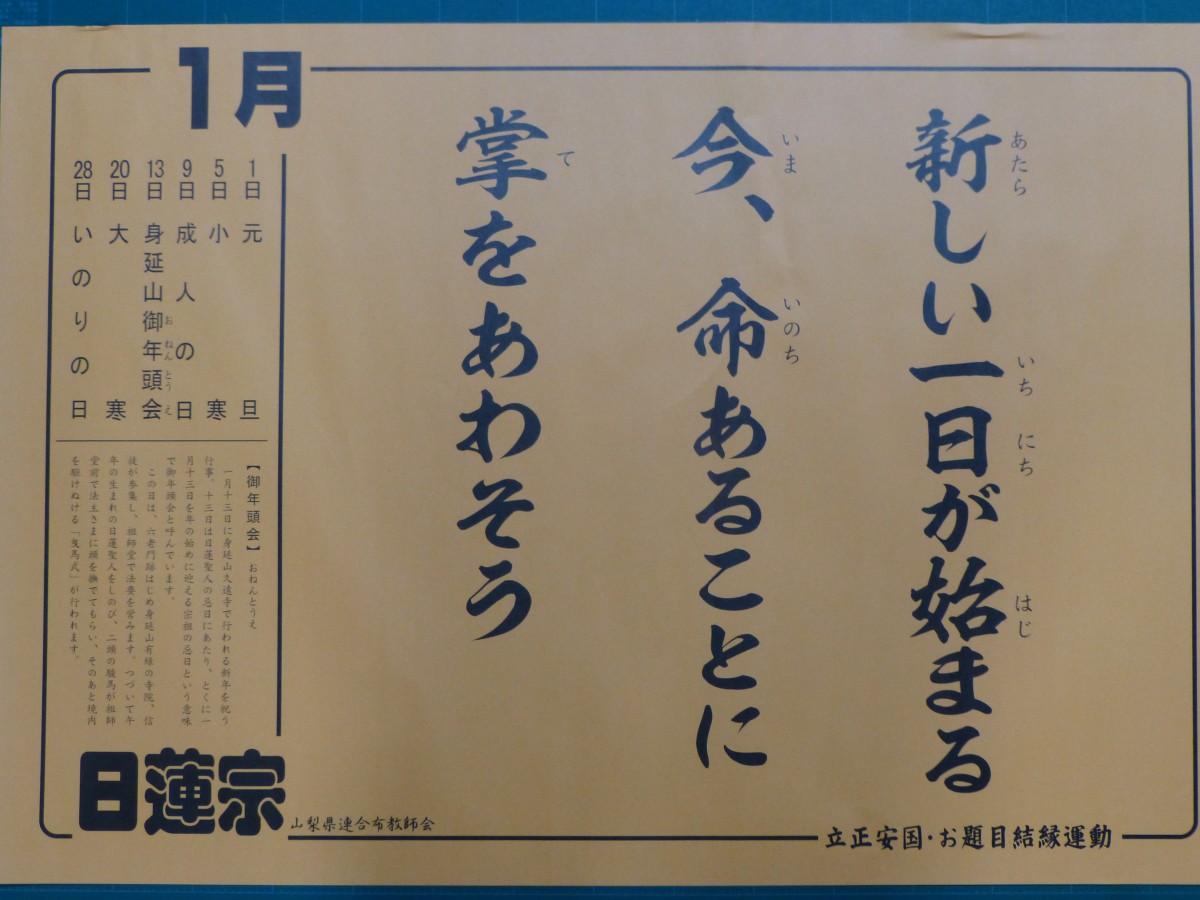 新しい一日が始まる
あたら
いち
にち
はじ
今、命あることに
いま
いのち
掌をあわそう
て
1月
1日 元旦
5日 小寒
9日 成人の日
13日 身延山御年頭会
おねんとうえ
20日 大寒
28日 いのりの日
【御年頭会】おねんとうえ
一月十三日に身延山久遠寺で行われる新年を祝う
行事。十三日は日蓮聖人の忌日にあたり、とくに一
月十三日を年の始めに迎える宗祖の忌日という意味
で御年頭会と呼んでいます。
この日は、六老門跡はじめ身延山有縁の寺院、信
徒が参集し、祖師堂で法要を営みます。つづいて午
年の生まれの日蓮聖人をしのび、二頭の駿馬が祖師
堂前で法主さまに頭を撫でてもらい、そのあと境内
を駆けぬける「曳馬式」が行われます。
日蓮宗
山梨県連合布教師会
立正安国・お題目結縁運動